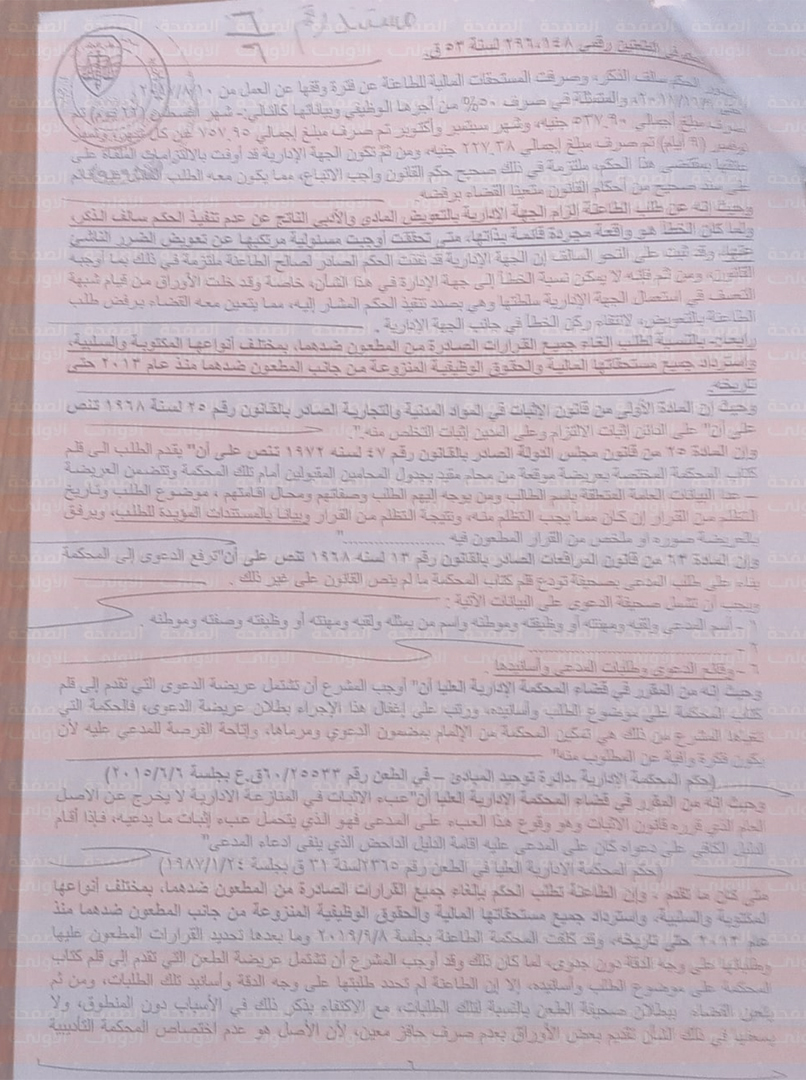 مستند رقم ٦/٩
الطعنين رقمي ١٤٨، ٢٩٦ لسنة ٥٣ ق.
الحكم سالف الذكر، وصرفت المستحقات المالية للطاعنة عن فترة وقفها عن العمل من
والمتمثلة في صرف ٥٠% من أجرها الوظيفي وبياناتها كالتالي:- شهر أغسطس (٢٢ يوم) تم
صرف مبلغ إجمالي ٥٣٧.٩٠ جنيه، وشهر سبتمبر وأكتوبر تم صرف مبلغ إجمالي ٧٥٧.٩٥ عن كل شهر، وشهر
نوفمبر (٩ أيام) تم صرف مبلغ إجمالي ٢٢٧.٣٨ جنيه، ومن ثم تكون الجهة الإدارية قد أوفت بالالتزامات الملقاة على
عاتقها بمقتضى هذا الحكم، ملتزمة في ذلك صحيح حكم القانون واجب الاتباع، مما يكون معه الطلب قائم
على سند صحيح من أحكام القانون متعينا القضاء برفضه.
وحيث إنه عن طلب الطاعنة إلزام الجهة الإدارية بالتعويض المادي والأدبي الناتج عن عدم تنفيذ الحكم سالف الذكر،
ولما كان الخطأ هو واقعة مجردة قائمة بذاتها، متى تحققت أوجبت مسئولية مرتكبها عن تعويض الضرر الناشئ
عنها، وقد ثبت على النحو السالف إن الجهة الإدارية قد نفذت الحكم الصادر لصالح الطاعنة ملتزمة في ذلك بما أوجبه
القانون، ومن ثم فإنه لا يمكن نسبة الخطأ إلى جهة الإدارة في هذا الشأن، خاصة وقد خلت الأوراق من قيام شبهة
التعسف في استعمال الجهة الإدارية سلطتها وهي بصدد تنفيذ الحكم المشار إليه، مما يتعين معه القضاء برفض طلب
الطاعنة بالتعويض، لانتفاء ركن الخطأ في جانب الجهة الإدارية .
رابعا:- بالنسبة لطلب إلغاء جميع القرارات الصادرة من المطعون ضدهما، بمختلف أنواعها المكتوبة والسلبية،
واسترداد جميع مستحقاتها المالية والحقوق الوظيفية المنزوعة من جانب المطعون ضدهما منذ عام ٢٠١٣ حتى
تاريخه.
وحيث إن المادة الأولى من قانون الإثبات في المواد المدنية والتجارية الصادر بالقانون رقم ٢٥ لسنة ١٩٦٨ تنص
على أن" على الدائن إثبات الالتزام وعلى المدين إثبات التخلص منه.".
وإن المادة ٢٥ من قانون مجلس الدولة الصادر بالقانون رقم ٤٧ لسنه ١٩٧٢ تنص على أن" يقدم الطلب الى قلم
كتاب المحكمة المختصة بعريضة موقعة من محام مقيد بجدول المحامين المقبولين أمام تلك المحكمة وتتضمن العريضة
– عدا البيانات العامة المتعلقة باسم الطالب ومن يوجه إليهم الطلب وصفاتهم ومحال اقامتهم ، موضوع الطلب وتاريخ
التظلم من القرار إن كان مما يجب التظلم منه، ونتيجة التظلم من القرار وبيانا بالمستندات المؤيدة للطلب، ويرفق
بالعريضة صوره أو ملخص من القرار المطعون فيه ..................."
وإن المادة ٦٣ من قانون المرافعات الصادر بالقانون رقم ١٣ لسنه ١٩٦٨ تنص على أن"ترفع الدعوى إلى المحكمة
بناء على طلب المدعي بصحيفة تودع قلم كتاب المحكمة ما لم ينص القانون على غير ذلك .
ويجب أن تشمل صحيفة الدعوى على البيانات الآتية :
١ – أسم المدعي ولقبه ومهنته أو وظيفته وموطنه واسم من يمثله ولقبه ومهنته أو وظيفته وصفته وموطنه .
٢ – ..............................
٦ – وقائع الدعوى وطلبات المدعي وأسانيدها .
وحيث إنه من المقرر في قضاء المحكمة الإدارية العليا أن" أوجب المشرع أن تشتمل عريضة الدعوى التي تقدم إلى قلم
كتاب المحكمة على موضوع الطلب وأسانيده، ورتب على إغفال هذا الإجراء بطلان عريضة الدعوى، فالحكمة التي
تغياها المشرع من ذلك هي تمكين المحكمة من الإلمام بمضمون الدعوي ومرماها، وإتاحة الفرصة للمدعي عليه لأن
يكون فكرة وافية عن المطلوب منه"
(حكم المحكمة الادارية -دائرة توحيد المبادئ – في الطعن رقم ٦٠/٢٥٥٣٣ق.ع بجلسة ٢٠١٥/٦/٦)
وحيث إنه من المقرر في قضاء المحكمة الادارية العليا أن"عبء الاثبات في المنازعة الادارية لا يخرج عن الأصل
العام الذي قرره قانون الاثبات وهو وقوع هذا العبء على المدعي فهو الذي يتحمل عبء إثبات ما يدعيه، فإذا أقام
الدليل الكافي على دعواه كان على المدعي عليه اقامة الدليل الداحض الذي ينفي ادعاء المدعي"
(حكم المحكمة الادارية العليا في الطعن رقم ٢٣٦٥لسنة ٣١ ق بجلسة ١٩٨٧/١/٢٤)
متى كان ما تقدم ، وإن الطاعنة تطلب الحكم بإلغاء جميع القرارات الصادرة من المطعون ضدهما، بمختلف أنواعها
المكتوبة والسلبية، واسترداد جميع مستحقاتها المالية والحقوق الوظيفية المنزوعة من جانب المطعون ضدهما منذ
عام ٢٠١٣ حتى تاريخه، وقد كلفت المحكمة الطاعنة بجلسة ٢٠١٩/٩/٨ وما بعدها تحديد القرارات المطعون عليها
وطلباتها على وجه الدقة دون جدوى، لما كان ذلك وقد أوجب المشرع أن تشتمل عريضة الطعن التي تقدم إلى قلم كتاب
المحكمة على موضوع الطلب وأسانيده، إلا إن الطاعنة لم تحدد طلبتها على وجه الدقة وأسانيد تلك الطلبات، ومن ثم
يتعين القضاء ببطلان صحيفة الطعن بالنسبة لتلك الطلبات، مع الاكتفاء بذكر ذلك في الأسباب دون المنطوق، ولا
يسعنيا في ذلك الشأن تقديم بعض الأوراق بعدم صرف حافز معين، لأن الأصل هو عدم اختصاص المحكمة التأديبية
٦